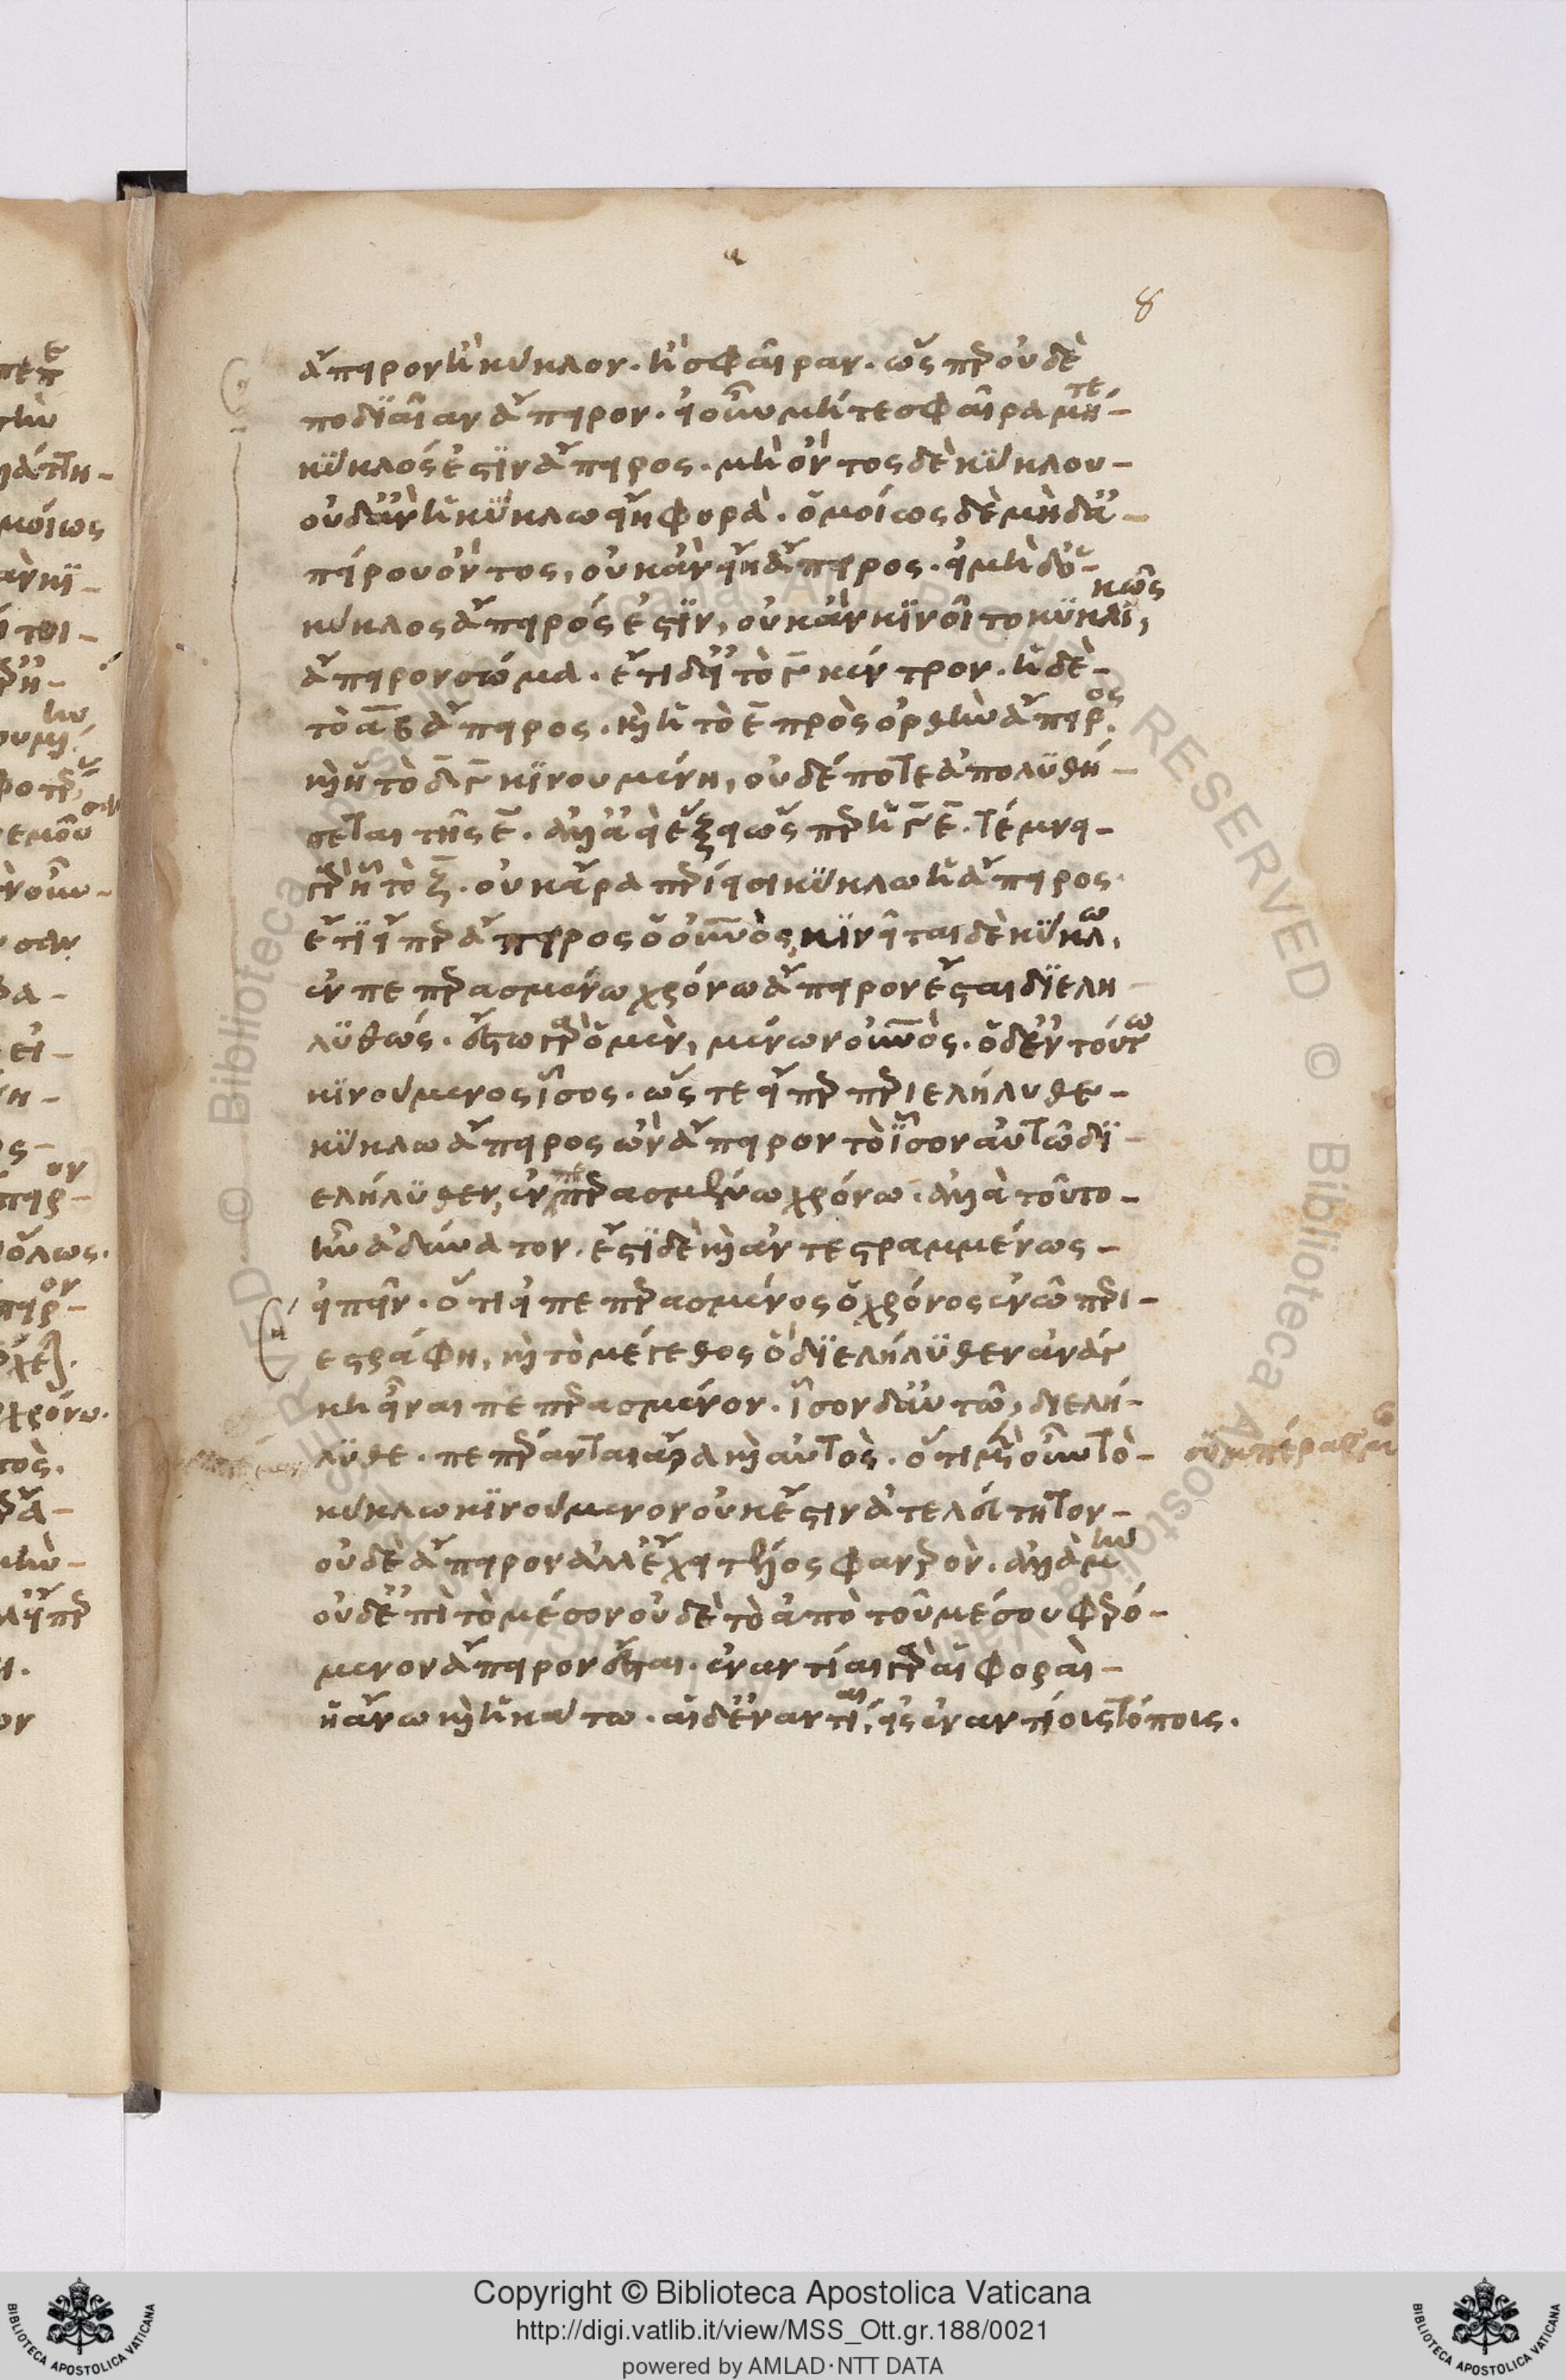 α
8
ἄπειρον ἢ κύκλον. ἢ σφαῖραν. ὥσπερ οὐδὲ
ποδϊαῖαν ἄπειρον. εἰ οὖν μήτε σφαῖρα μήτε
κϋκλός ἐστϊν ἄπειρος. μὴ ὄντος δὲ κϋκλου
οὐδ' ἂν ἡ κϋκλω εἴη φορά. ὁμοίως δὲ μηδ' ἀ
πείρου ὄντος, οὐκ ἂν εἴη ἄπειρος. εἰ μηδ' ὁ
κύκλος ἄπειρός ἐστϊν, οὐκ ἂν κϊνοῖτο κϋκλϊκῶς
ἄπειρον σῶμα. ἔτι δ' εἰ τὸ γ̄ κέντρον. ἡ δὲ
τὸ ᾱβ ἄπειρος. καὶ ἡ τὸ ε̄ πρὸς ὀρθὴν ἄπειρος.
καὶ ἡ τὸ δ̄γ̄ κϊνουμένη, οὐδέποτε ἀπολϋθή
σεται τῆς ε̄. ἀλλ' ἀεὶ ἕξει ὥσπερ ἡ γ̄ε̄. τέμνει
γὰρ ἧ τὸ ζ̄. οὐκ ἄρα πρίεισι κϋκλω ἡ ἄπειρος.
ἔτϊ εἴπερ ἄπειρος ὁ οὐνος, κϊνεῖται δὲ κϋκλω,
ἐν πεπερασμένω χρόνω ἄπειρον ἔσται διελη
λϋθώς. ἔστω γὰρ ὁ μὲν, μένων οὐνος. ὁ δ' ἐν τούτω
κϊνούμενος ἴσος. ὥστε εἴπερ περιελήλυθε
κϋκλω ἄπειρος ὢν ἄπειρον τὸ ἴσον αὑτῶ δϊ
ελήλϋθεν, ἐν πεπερασμένω χρόνω. ἀλλὰ τοῦτο
ἦν ἀδύνατον. ἔστϊ δὲ καὶ ἀντεστραμμένως
εἰπεῖν. ὅτι εἰ πεπερασμένος ὁ χρόνος ἐν ὧ περι
εστράφη, καὶ τὸ μέγεθος ὃ δϊελήλϋθεν ἀνάγ
κη εἶναι πεπερασμένον. ἴσον δ' αὑτῶ, διελή
λϋθε. πεπέρανται ἄρα καὶ αὐτός. ὅτι μὲν οὖν τὸ
κύκλω κϊνούμενον οὐκ ἔστιν ἀτελεύτητον
οὐδὲ ἄπειρον ἀλλ' ἔχει τέλος φανερόν. ἀλλὰ μὴν
οὐδ' ἐπὶ τὸ μέσον οὐδὲ τὸ ἀπὸ τοῦ μέσου φερό
μενον ἄπειρον ἔσται. ἐναντίαι γὰρ αἱ φοραὶ
ἡ ἄνω καὶ ἡ κάτω. αἱ δ' ἐναντίαι, εἰς ἐναντίους τόπους.
Copyright © Biblioteca Apostolica Vaticana
http://digi.vatlib.it/view/MSS_Ott.gr.188/0021
powered by AMLAD·NTT DATA
BIBLIOTECA APOSTOLICA VATICANA
BIBLIOTECA APOSTOLICA VATICANA